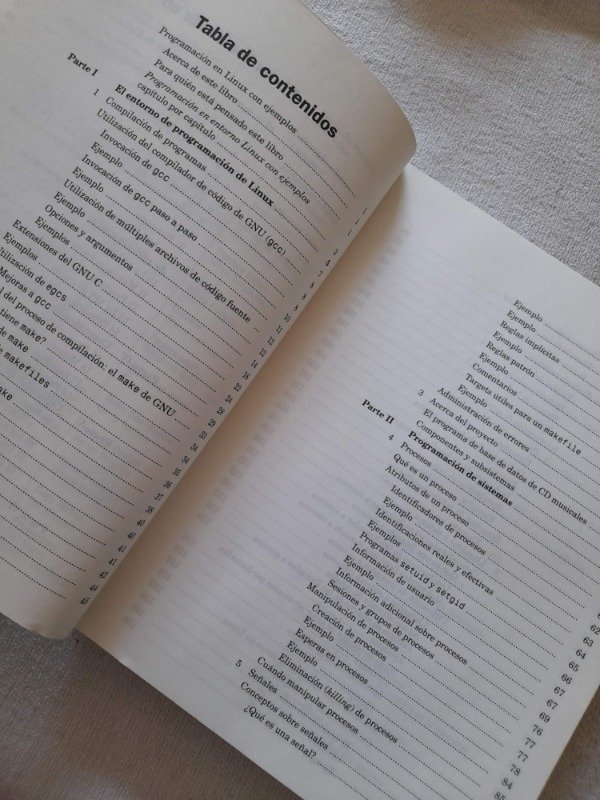 Tabla de contenidos
Programación en Linux con ejemplos
Acerca de este libro
Para quién está pensado este libro
Programación en entorno Linux con ejemplos
capítulo por capítulo
Parte I El entorno de programación de Linux
1 Compilación de programas
Utilización del compilador de código de GNU (gcc)
Ejemplo
Invocación de gcc
Ejemplo
Invocación de gcc paso a paso
Ejemplo
Utilización de múltiples archivos de código fuente
Opciones y argumentos
Ejemplos
Extensiones del GNU C
Ejemplos
Utilización de egcs
Mejoras a gcc
del proceso de compilación: el make de GNU
tiene make?
de make
makefiles
make
Ejemplo
Ejemplo
Reglas implícitas
Ejemplo
Reglas patrón
Ejemplo
Comentarios
Targets útiles para un makefile
Ejemplo
Administración de errores
3 Acerca del proyecto
El programa de base de datos de CD musicales
Componentes y subsistemas
Parte II Programación de sistemas
4 Procesos
Qué es un proceso
Atributos de un proceso
Identificadores de procesos
Ejemplo
Identificaciones reales y efectivas
Ejemplos
Programas setuid y setgid
Información de usuario
Ejemplo
Información adicional sobre procesos
Sesiones y grupos de procesos
Manipulación de procesos
Creación de procesos
Ejemplo
Esperas en procesos
Ejemplo
Eliminación (killing) de procesos
Cuándo manipular procesos
5 Señales
Conceptos sobre señales
¿Qué es una señal?